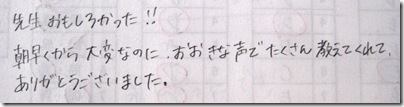 先生おもしろかった!!
朝早くから大変なのに、おおきな声でたくさん教えてくれて、
ありがとうございました。